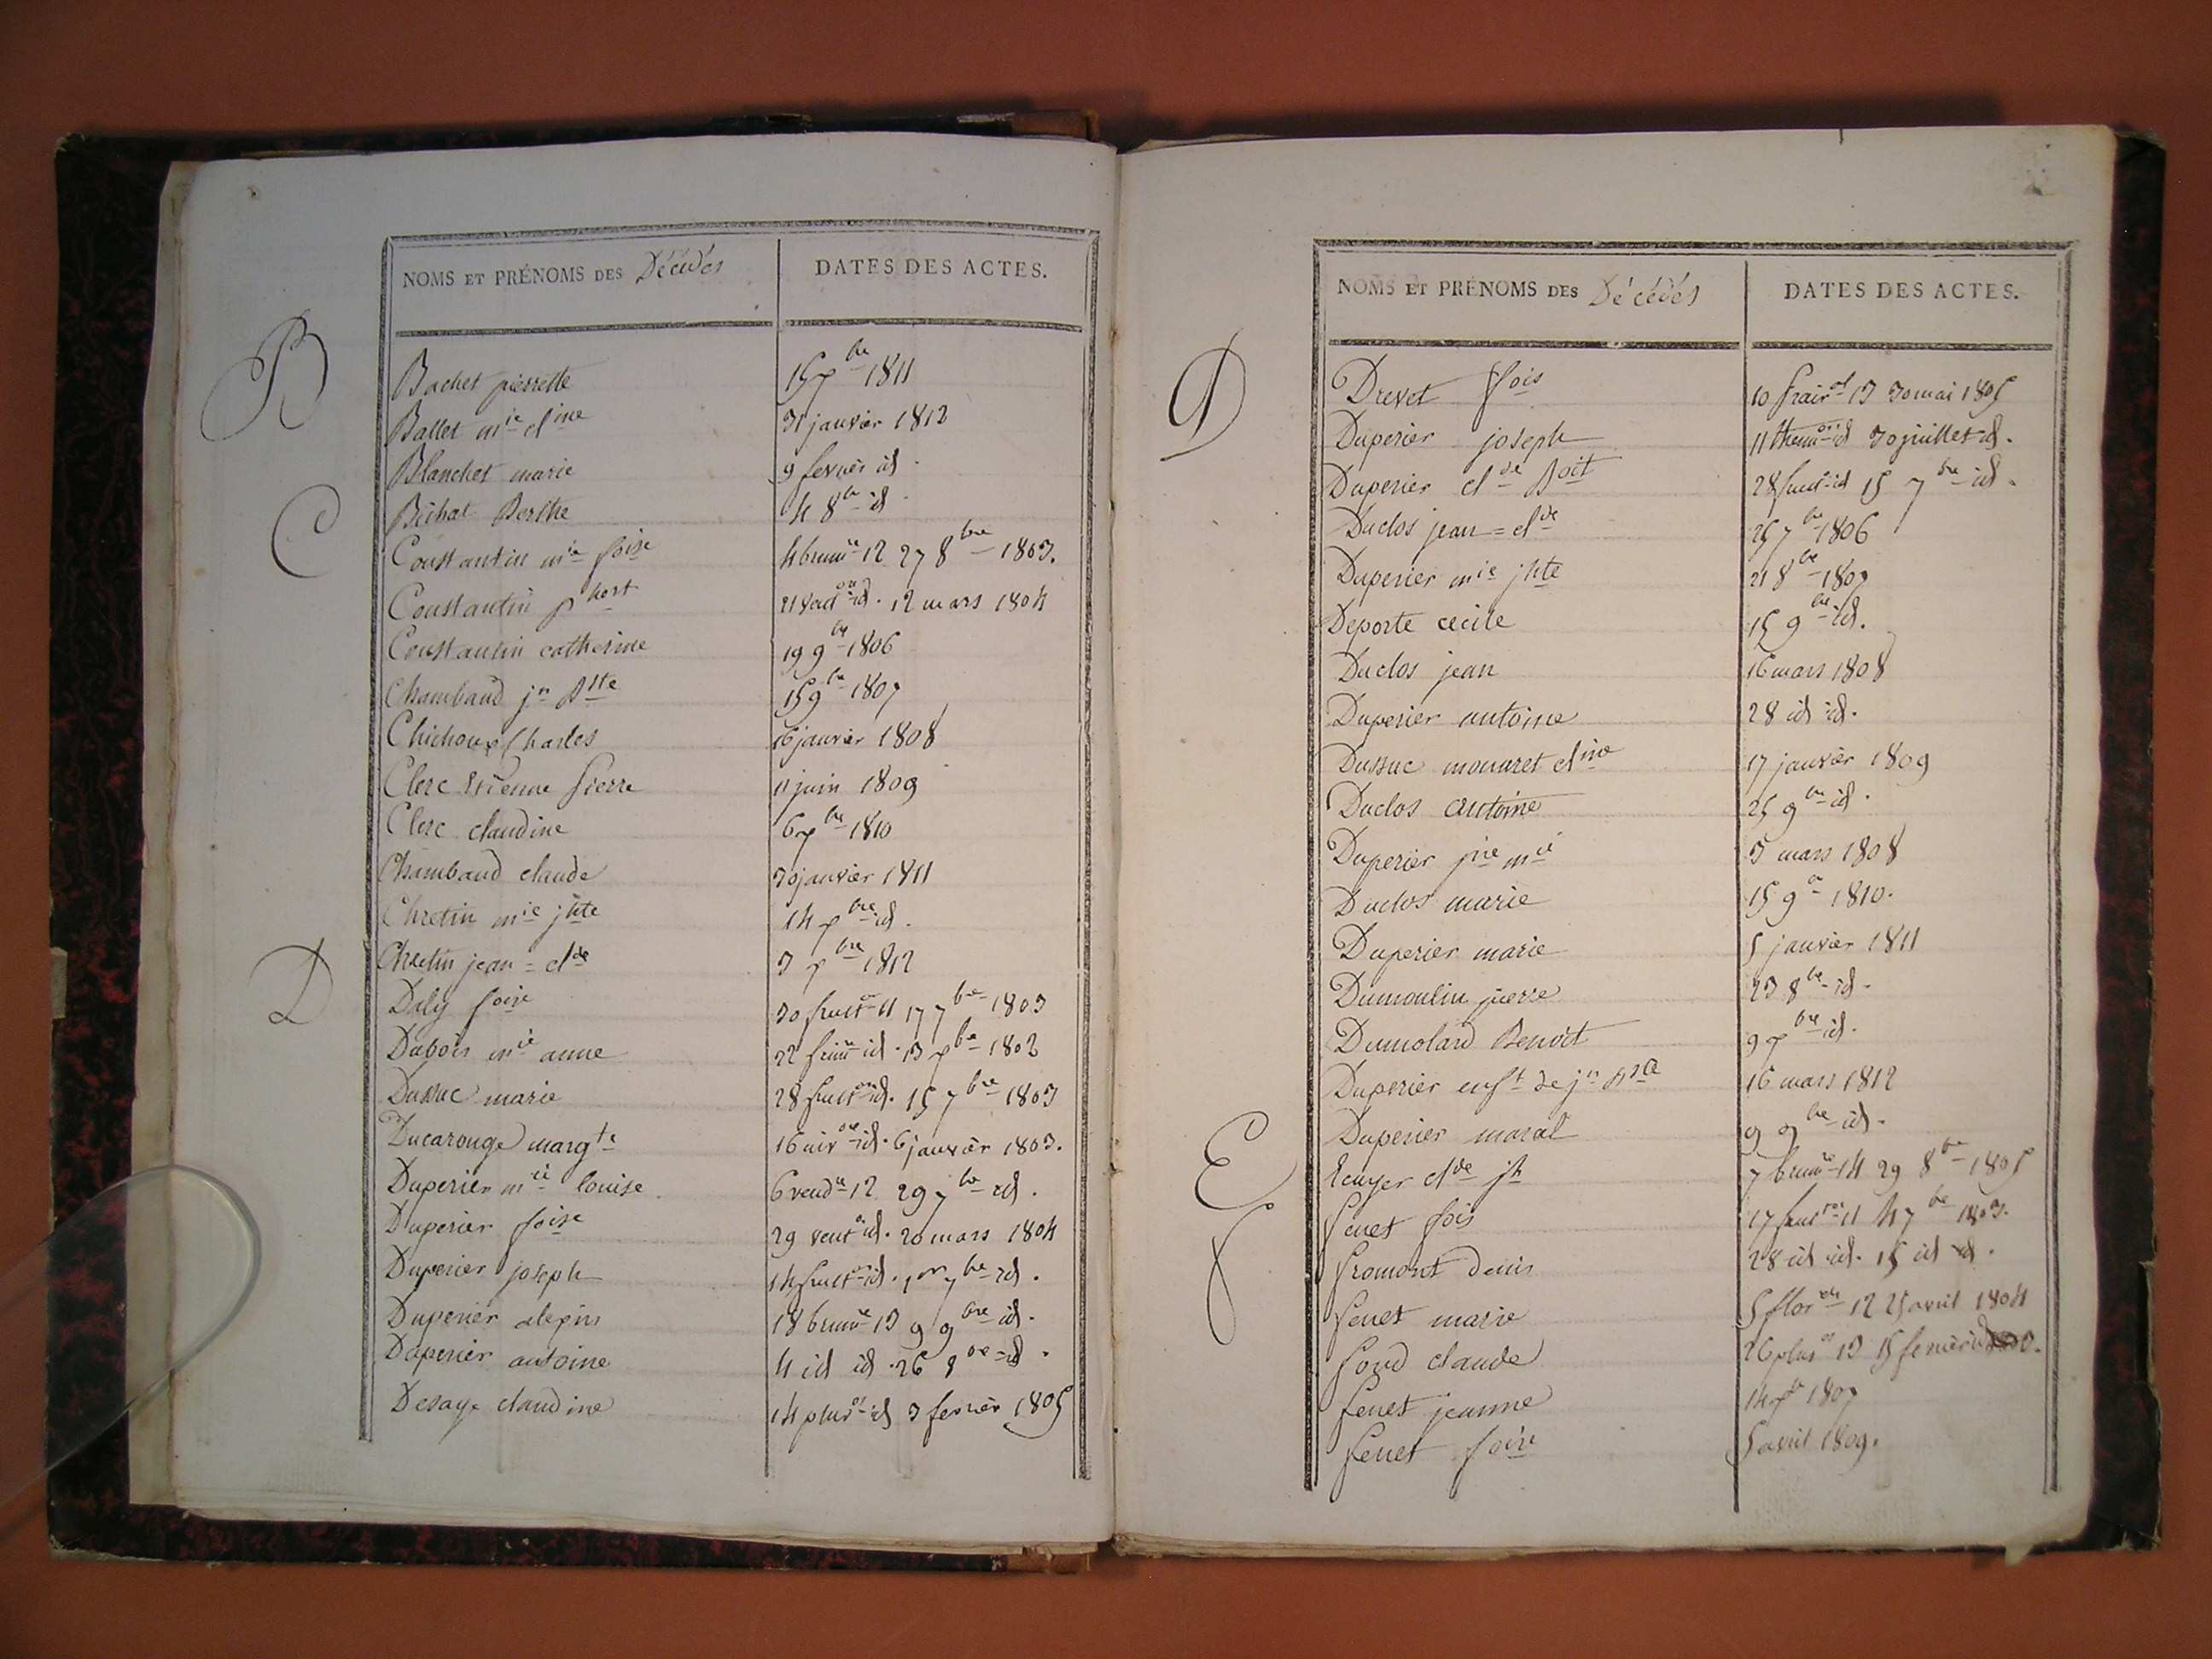 NOMS ET PRÉNOMS DES Décédés DATES DES ACTES.
B
Bachet pierrette 15 xbre 1811
Ballet mie cline 31 janvier 1812
Blanchet marie 9 fevrier id.
C
Bichat Berthe 4 8bre id.
Constantin mie foise 4 brumre 12 27 8bre 1803.
Constantin phort 21 vent id. 12 mars 1804
Constantin catherine 19 9bre 1806
Chambaud jn Bste 15 9bre 1807
Chichoux Charles 16 janvier 1808
Clerc Etienne Pierre 11 juin 1809
Clerc claudine 6 xbre 1810
Chambaud claude 30 janvier 1811
Chretin mie jhte 14 xbre id.
D
Chretin jean = clde 3 xbre 1812
Daly foise 30 fruct 11 17 7bre 1803
Dubois mie anne 22 frimre id. 13 xbre 1802
Dussuc marie 28 fruct id. 15 7bre 1803
Ducarouge margte 16 niv id. 6 janvier 1803.
Duperier mie louise 6 vendre 12 29 7bre id.
Duperier foise 29 vent id. 20 mars 1804
Duperier joseph 14 fruct id. 1er 7bre id.
Duperier alexis 18 brumre 13 9 9bre id.
Duperier antoine 4 id id. 26 8bre id.
Desaye claudine 14 pluv id 3 fevrier 1805
NOMS ET PRÉNOMS DES Décédés DATES DES ACTES.
D
Drevet fois 10 prairal 13 30 mai 1805
Duperier joseph 11 therm id 30 juillet id.
Duperier clde Boit 28 fruct id 15 7bre id.
Duclos jean = clde 25 7bre 1806
Duperier mie jhte 21 8bre 1807
Deporte cecile 15 9bre id.
Duclos jean 16 mars 1808
Duperier antoine 28 id id.
Dussuc mouuret cline 17 janvier 1809
Duclos antoine 25 9bre id.
Duperier jne mie 3 mars 1808
Duclos marie 15 9bre 1810.
Duperier marie 5 janvier 1811
Dumoulin pierre 23 8bre id.
Dumolard Benoit 9 xbre id.
Duperier enft de jn Bste 16 mars 1812
Duperier maral 9 9bre id.
E
Ecuyer clde jh 7 brumre 14 29 8bre 1805
F
fenet fois 17 fruct 11 4 7bre 1803.
fromont denis 28 id id. 15 id id.
fenet marie 5 floral 12 25 avril 1804
fond claude 26 pluv 13 15 fevrier id
fenet jeanne 14 xbre 1807
fenet foise 5 avril 1809.